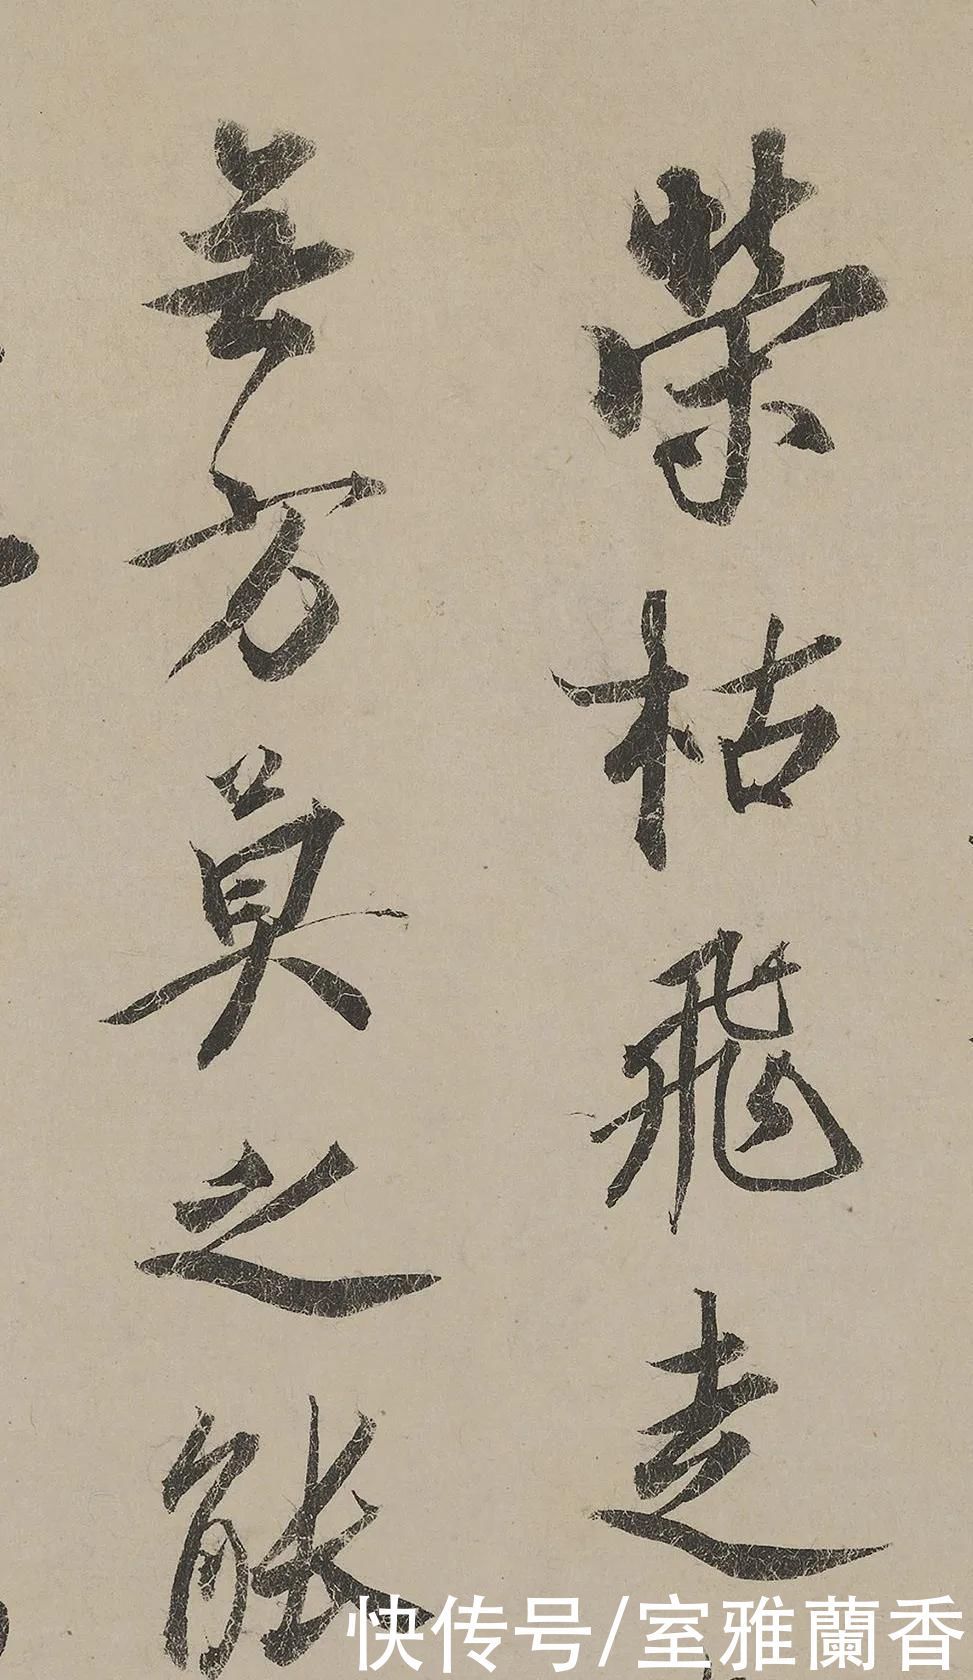 榮枯飛走
無方莫之能
快传号/室雅蘭香